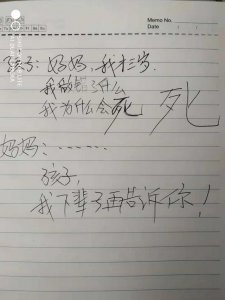 Memo No.
Date / /
孩子：妈妈，我才三岁.
我做错了什么
我为什么会死 死
妈妈：……
孩子,
我下辈子再告诉你！